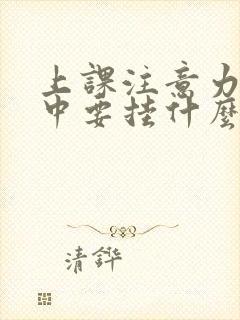 上課注意力
中要挂什麼
清鏵